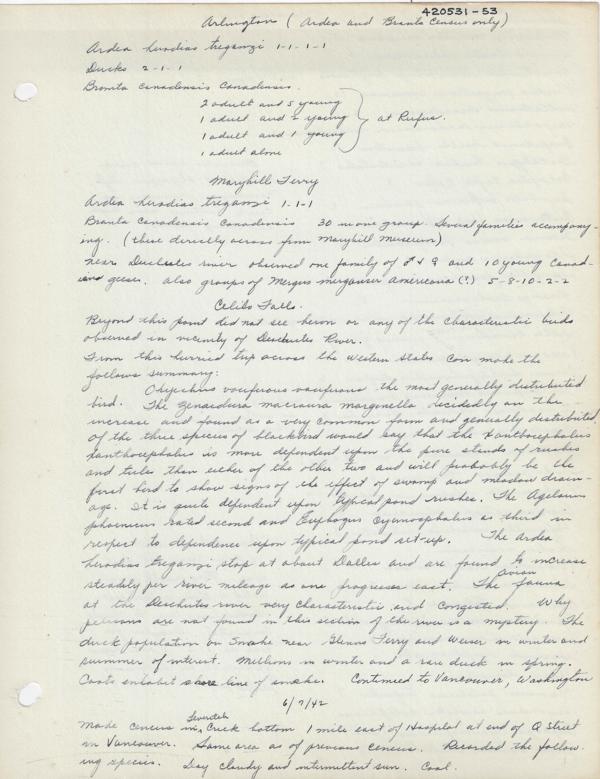 420531-53
Arlington (Ardea and Branta Census only)
Ardea herodias treganzi 1-1-1-1
Ducks 2-1-1
Branta canadensis canadensis.
2 adult and 5 young
1 adult and young
1 adult and 1 young
1 adult alone
at Rufus.
Maryhill Ferry
Ardea herodias treganzi 1-1-1
Branta canadensis canadensis 30 in one group. Several families accompany-
ing. (these directly across from Maryhill Museum)
near Deschutes river observed one family of ♂ & ♀ and 10 young Canad-
geese. Also groups of Mergus merganser americana (?) 5-8-10-2-2
Celilo Falls.
Beyond this point did not see heron or any of the characteristic birds
observed in vicinity of Deschutes River.
From this hurried trip across the western states can make the
follows summary:
Oxyechus vociferous vociferous the most generally distributed
bird. The Zenaidura macroura marginella decidedly on the
increase and found as a very common form and generally distributed.
Of the three species of blackbird would say that the Xanthocephalus
xanthocephalus is more dependent upon the pure stands of rushes
and tules than either of the other two and will probably be the
first bird to show signs of the effect of swamp and meadow drain-
age. It is quite dependent upon typical pond rushes. The Agelaius
phoeniceus rated second and Euphagus cyanocephalus as third in
respect to dependence upon typical pond set-up. The Ardea
herodias treganzi stop at about Dalles and are found to increase
steadily per river mileage as one progresses east. The avian fauna
at the Deschutes river very characteristic and congested. Why
pelicans are not found in this section of the river is a mystery. The
duck population on Snake near Glenns Ferry and Weiser in winter and
summer of interest. Millions in winter and a rare duck in spring.
Coots inhabit shore line of snake. Continued to Vancouver, Washington
6/7/42
Made census in Creek bottom 1 mile east of Hospital at end of Q Street
in Vancouver. Same area as of previous census. Recorded the follow-
ing species. Day cloudy and intermittent sun. Cool.